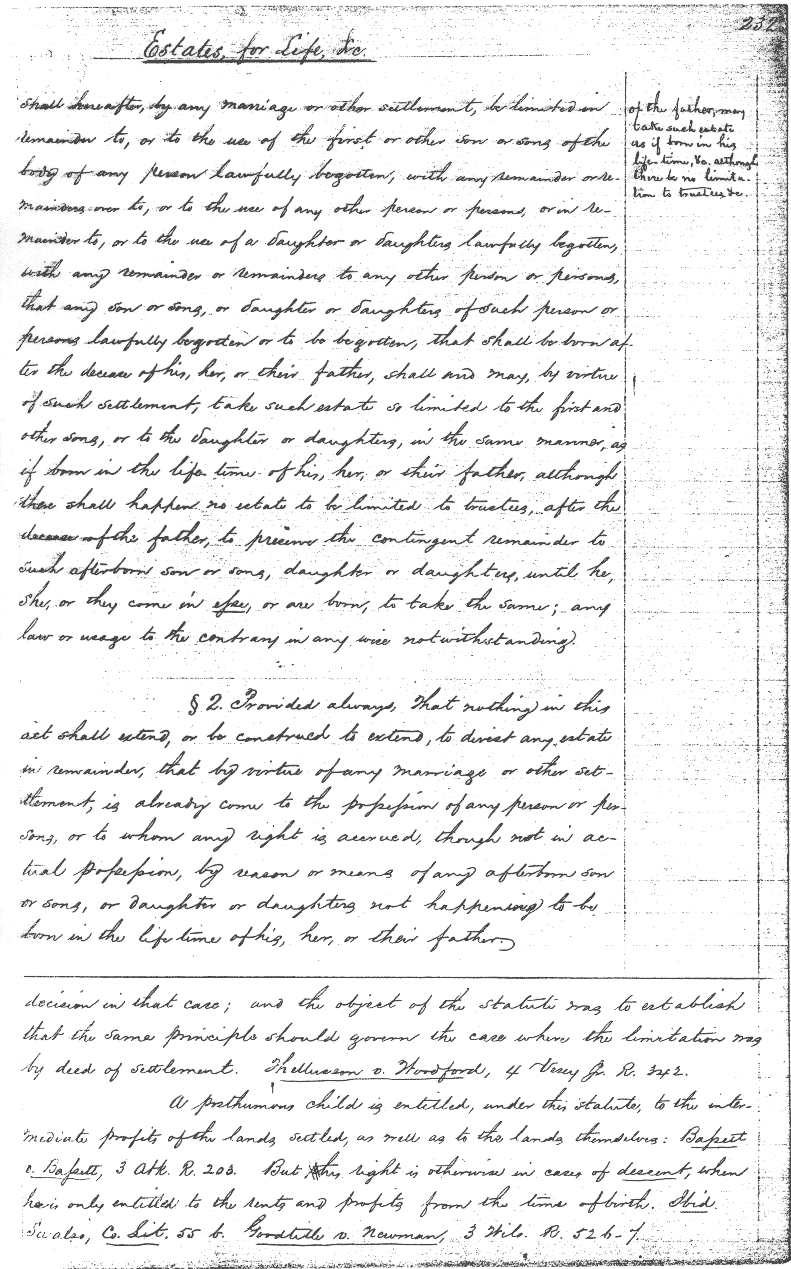 232
Estates, for Life, &c.
shall hereafter, by any marriage or other settlement, be limited in
remainder to, or to the use of the first or other son or sons of the
body of any person lawfully begotten, with any remainder or re-
mainders over to, or to the use of any other person or persons, or in re-
mainder to, or to the use of a daughter or daughters lawfully begotten,
with any remainder or remainders to any other person or persons,
that any son or sons, or daughter or daughters of such person or
persons lawfully begotten or to be begotten, that shall be born af-
ter the decease of his, her, or their father, shall and may, by virtue
of such settlement, take such estate so limited to the first and
other sons, or to the daughter or daughters, in the same manner, as
if born in the life time of his, her, or their father, although
there shall happen no estate to be limited to trustees, after the
decease of the father, to preserve the contingent remainder to
such afterborn son or sons, daughter or daughters, until he,
she, or they come in esse, or are born, to take the same; any
law or usage to the contrary in any wise notwithstanding.
of the father, may
take such estate
as if born in his
life time, &c. although
there be no limita-
tion to trustees &c.
§ 2. Provided always, That nothing in this
act shall extend, or be construed to extend, to divest any estate
in remainder, that by virtue of any marriage or other set-
tlement, is already come to the possession of any person or per-
sons, or to whom any right is accrued, though not in ac-
tual possession, by reason or means of any afterborn son
or sons, or daughter or daughters not happening to be
born in the life time of his, her, or their father.
decision in that case; and the object of the statute was to establish
that the same principle should govern the case where the limitation was
by deed of settlement. Thellusson v. Woodford, 4 Vesey Jr. R. 342.
A posthumous child is entitled, under this statute, to the inter-
mediate profits of the lands settled, as well as to the lands themselves: Bassett
v. Bassett, 3 Atk. R. 203. But this right is otherwise in cases of descent, when
he is only entitled to the rents and profits from the time of birth. Ibid.
See also, Co. Lit. 55 b. Goodtitle v. Newman, 3 Wils. R. 526-7.